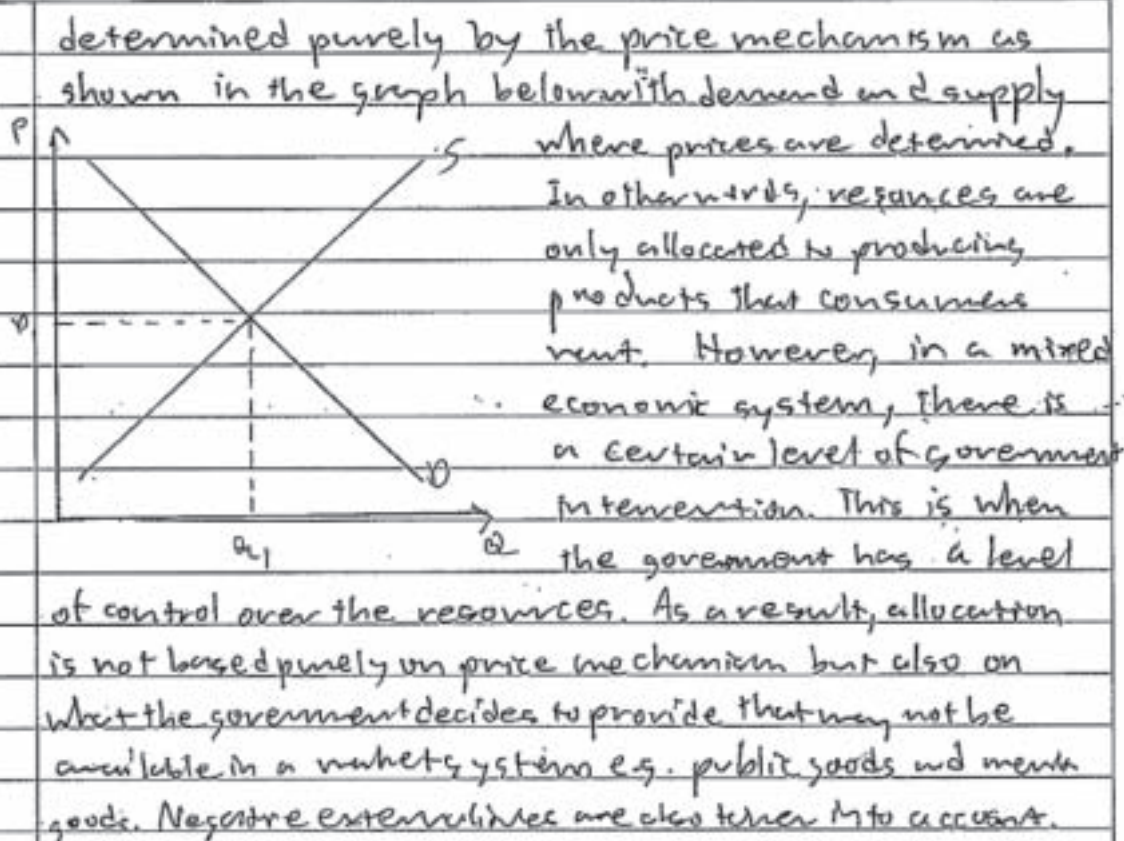 determined purely by the price mechanism as
shown in the graph below with demand and supply
P
S
where prices are determined.
In other words, resources are
only allocated to producing
products that consumers
want. However, in a mixed
economic system, there is
a certain level of government
D
intervention. This is when
Q1
Q
the government has a level
of control over the resources. As a result, allocation
is not based purely on price mechanism but also on
what the government decides to provide that may not be
available in a market system e.g. public goods and merit
goods. Negative externalities are also taken into account.